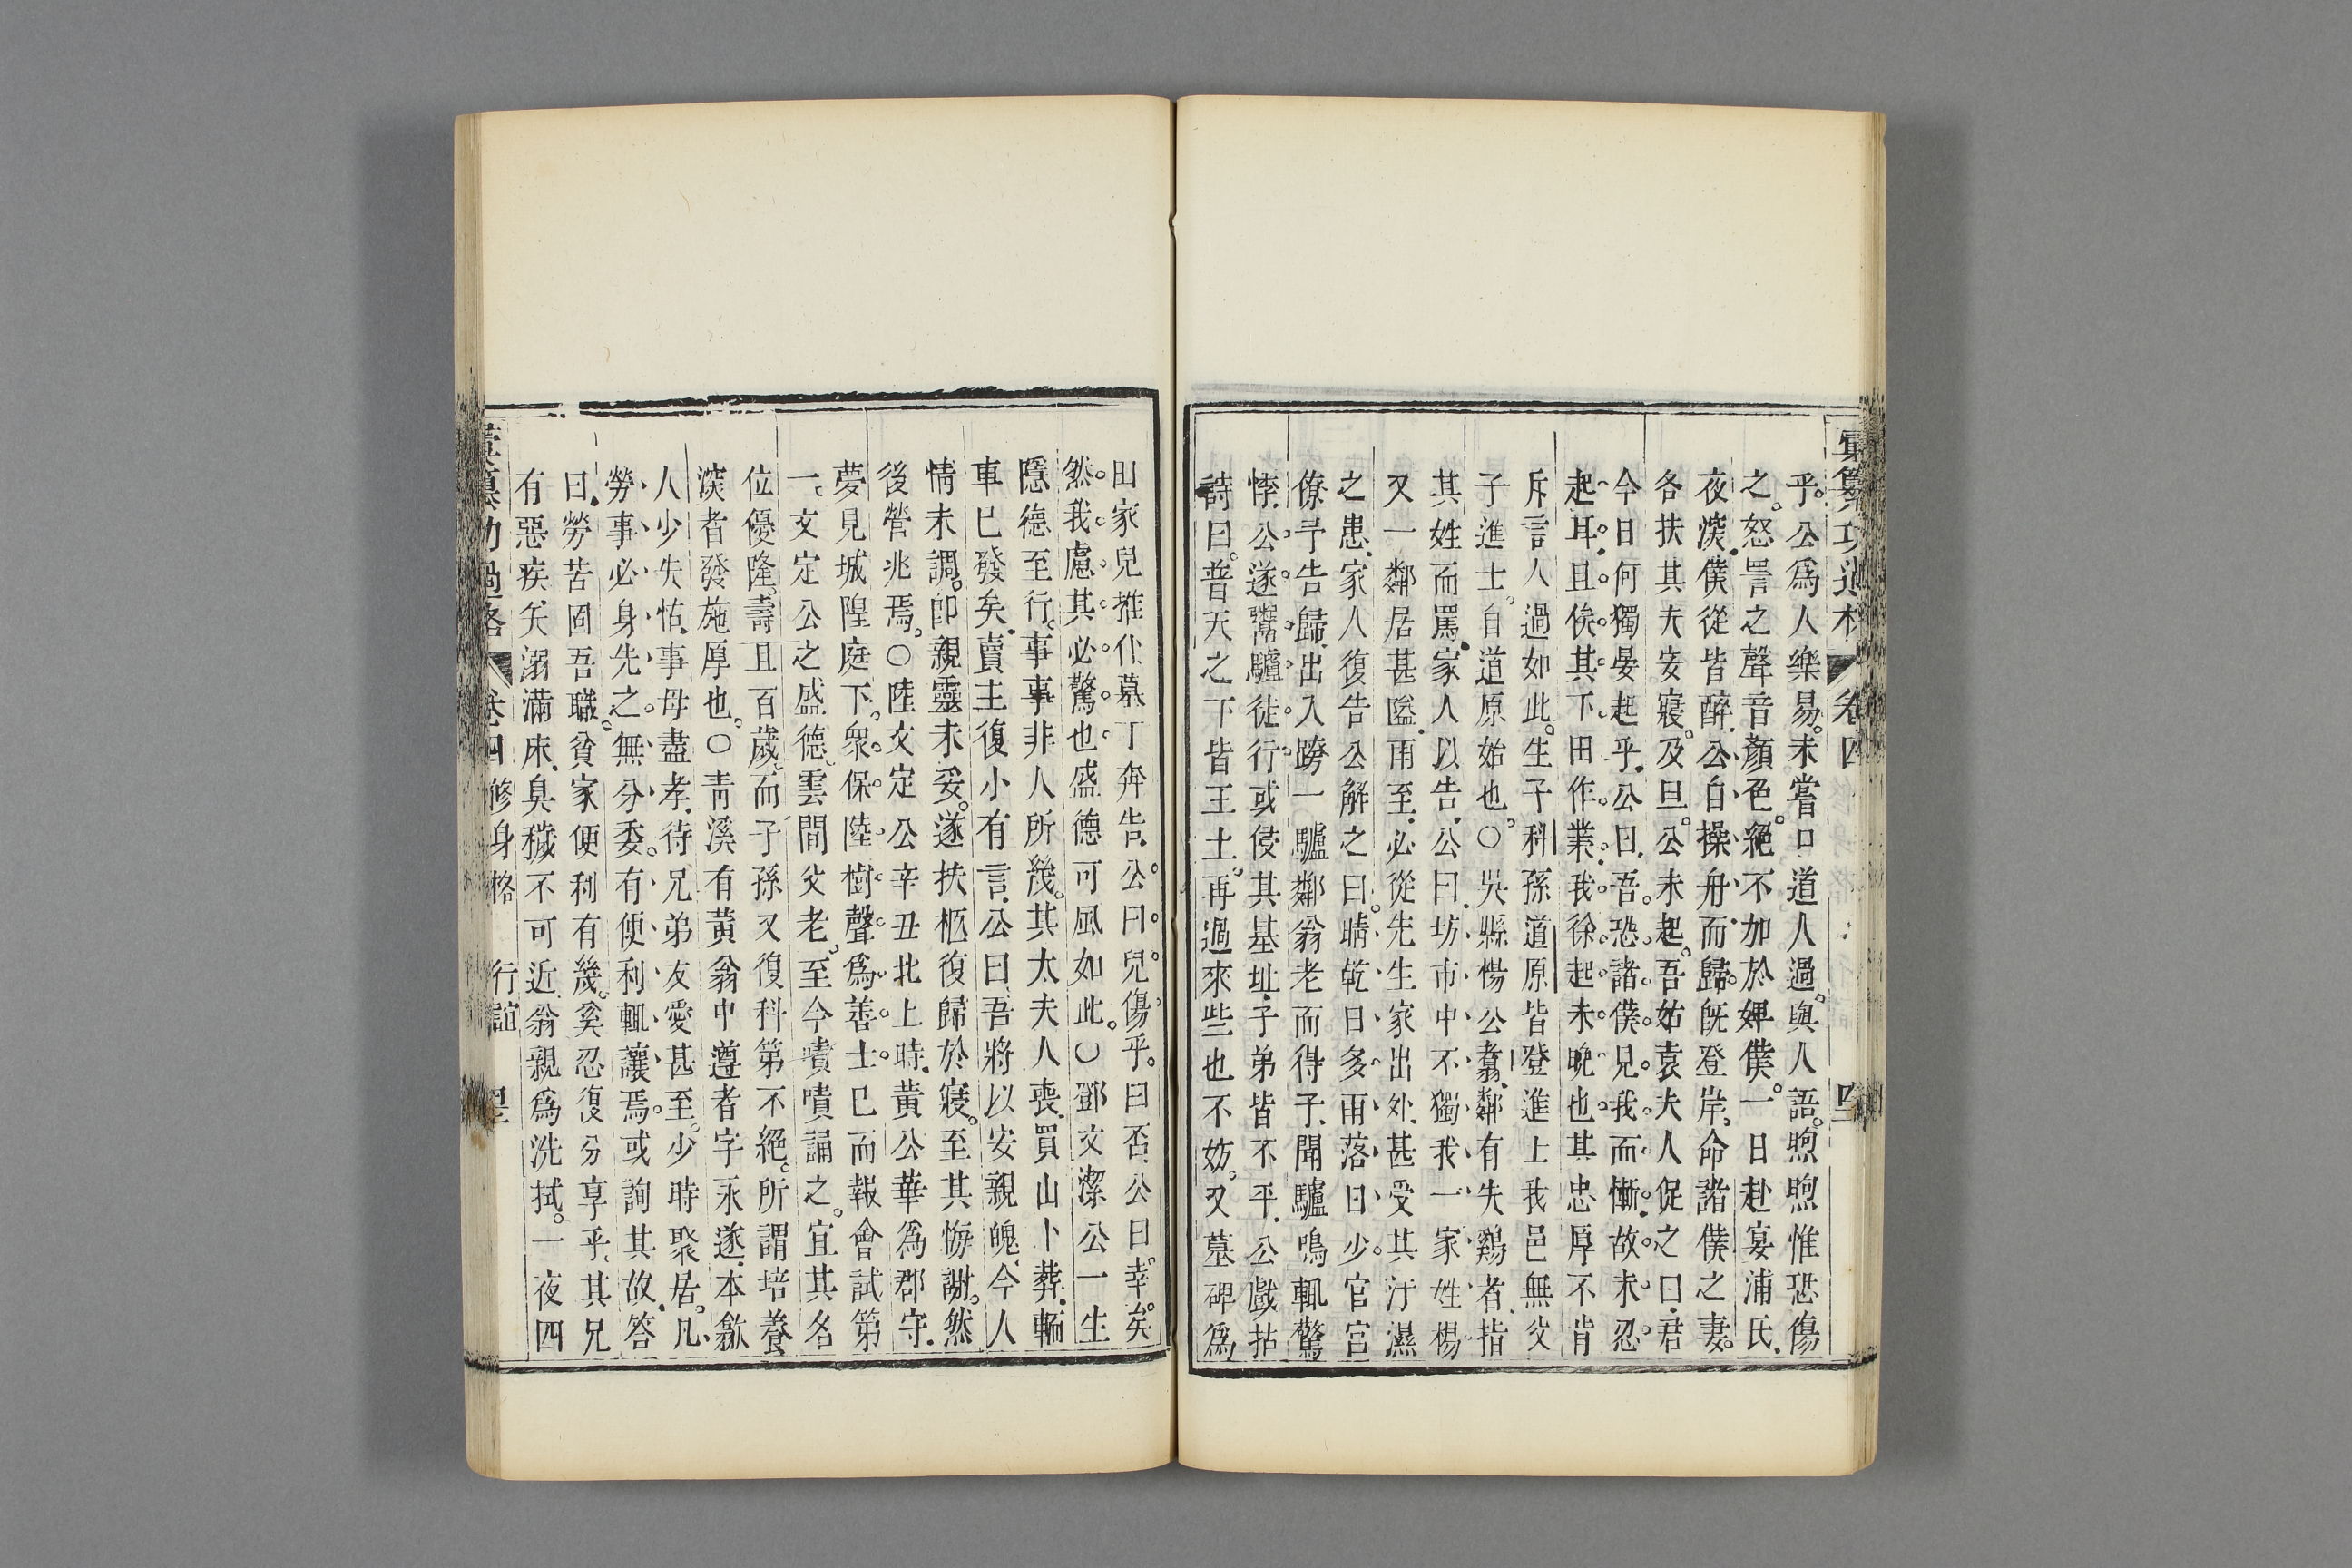 彙纂功過格 卷四
乎。公爲人樂易。未嘗口道人過。與人語。煦煦惟恐傷
之。怒詈之聲音顏色。絕不加於婢僕。一日赴宴浦氏。
夜深。僕從皆醉。公自操舟而歸。旣登岸。命諸僕之妻。
各扶其夫安寢。及旦。公未起。吾姑袁夫人促之曰。君
今日何獨晏起乎。公曰。吾恐諸僕兄我而慚。故未忍
起耳。且俟其下田作業。我徐起未晚也。其忠厚不肯
斥言人過如此。生子科孫道原皆登進上我邑無父
子進士。自道原始也。○吳縣楊公翥。鄰有失鷄者。指
其姓而罵。家人以告。公曰。坊市中不獨我一家姓楊
又一鄰居甚隘。雨至。必從先生家出外。甚受其汙濕
之患。家人復告公解之曰。晴乾日多。雨落日少。官宮
僚予告歸。出入跨一驢鄰翁老而得子。聞驢鳴輒驚
悸。公遂鬻驢徒行或侵其基址。子弟皆不平。公戲拈
詩曰。普天之下皆王土。再過來些也不妨。又墓碑爲
田家兒推仆墓丁奔告。公曰。兒傷乎。曰否。公曰。幸矣。
然。我慮其必驚也。盛德可風如此。○鄧文潔公一生
隱德至行。事事非人所幾。其太夫人喪。買山卜葬。輀
車已發矣。賣主復小有言。公曰。吾將以安親魄。今人
情未調。卽親靈未妥。遂扶柩復歸於寢。至其悔謝。然
後營兆焉。○陸文定公辛丑北上時。黃公華爲郡守。
夢見城隍庭下。衆保陸樹聲爲善士已而報會試第
一。文定公之盛德。雲間父老。至今嘖嘖誦之。宜其名
位優隆。壽且百歲。而子孫又復科第不絕。所謂培養
深者發施厚也。○靑溪有黃翁中遵者字永遂。本歙
人少失怙。事母盡孝。待兄弟友愛甚至。少時聚居。凡
勞事必身先之。無分委。有便利輒讓焉。或詢其故。答
曰。勞苦固吾職。貧家便利有幾。奚忍復分享乎。其兄
有惡疾矢溺滿床。臭穢不可近翁親爲洗拭。一夜四
彙纂功過格 卷四 修身格 行誼